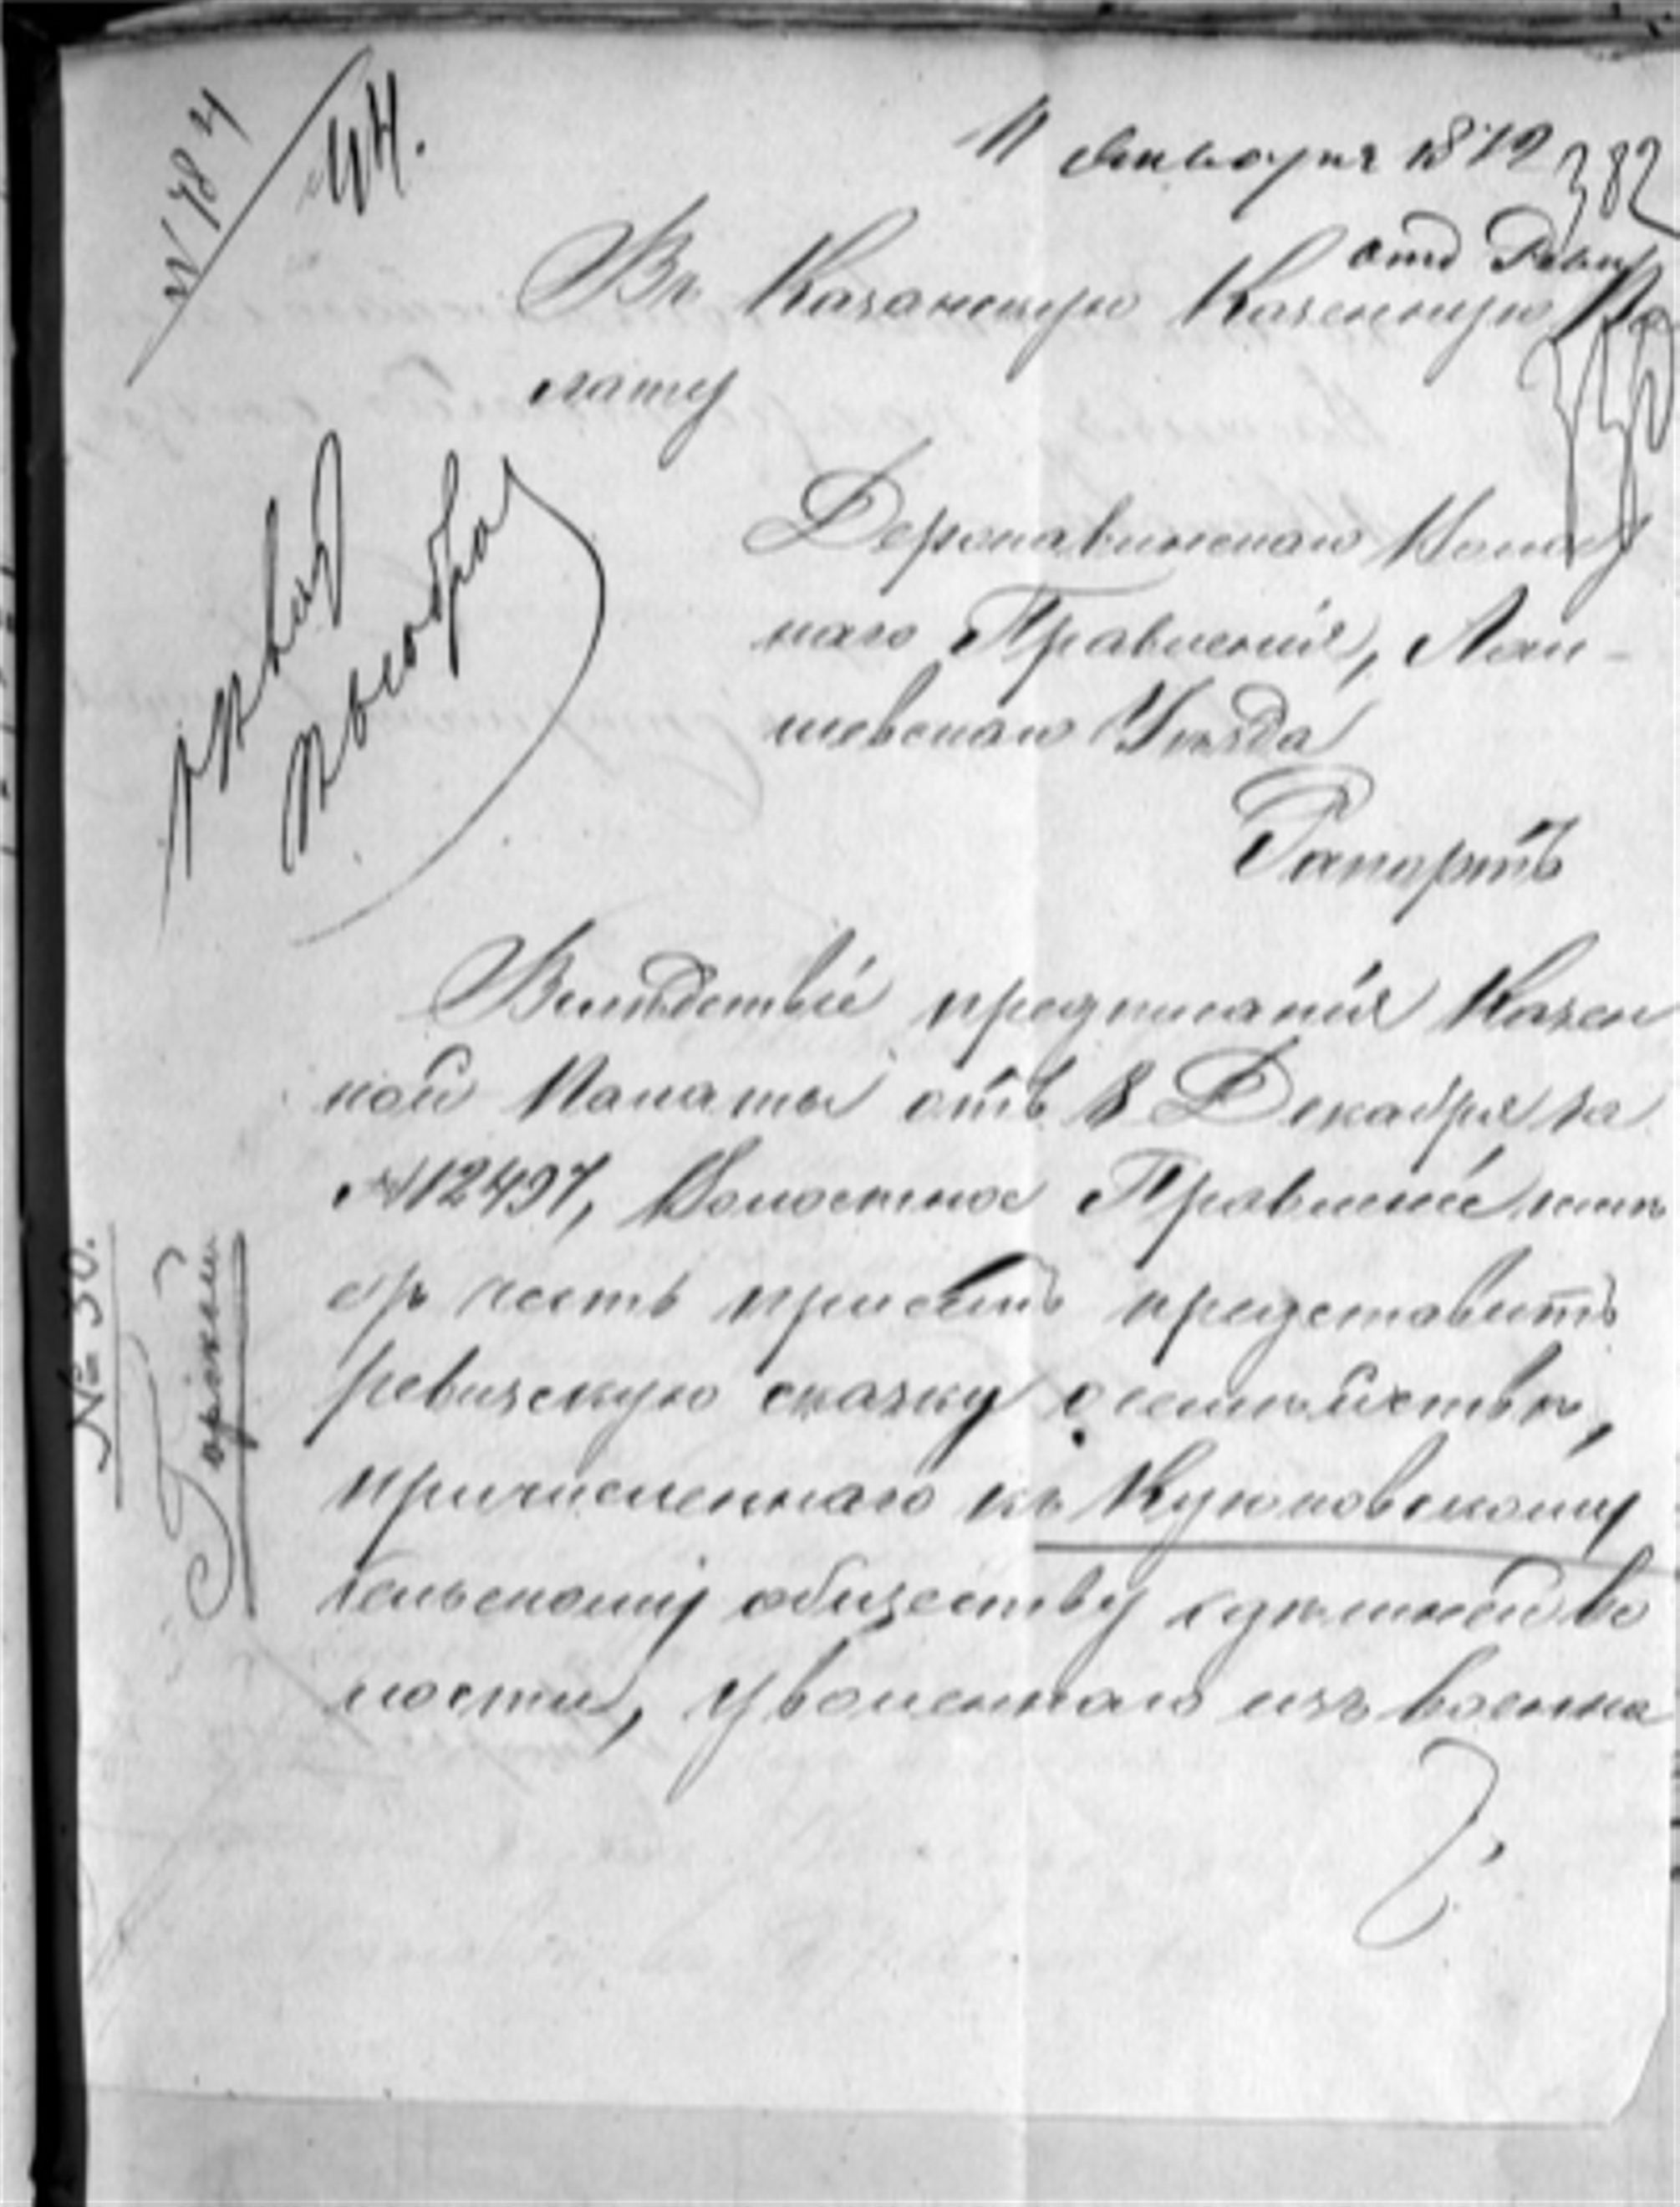 № 484
11 Января 1872
382
отд Реви
Въ Казанскую Казенную Па
лату
Державинскаго Волос
наго Правленія, Лаи-
шевскаго Уѣзда
Рапортъ
Вслѣдствіе предписанія Казен
ной Палаты отъ 8 Декабря за
№ 12497, Волостное Правленіе имѣ
етъ честь при семъ представить
ревизскую сказку о семействѣ,
причисленнаго къ Куюковскому
сельскому обществу здѣшней во
лости, уволеннаго изъ военна
№ 30.